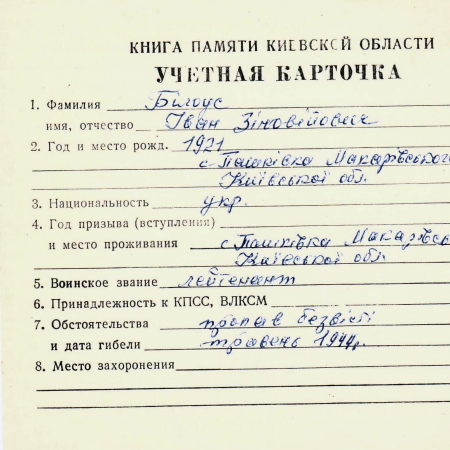 КНИГА ПАМЯТИ КИЕВСКОЙ ОБЛАСТИ
УЧЕТНАЯ КАРТОЧКА
1. Фамилия Білоус
имя, отчество Іван Зіновійович
2. Год и место рожд. 1921
с. Пашківка Макарівського
Київської обл.
3. Национальность укр.
4. Год призыва (вступления)
и место проживания с. Пашківка Макарівсь
Київської обл.
5. Воинское звание лейтенант
6. Принадлежность к КПСС, ВЛКСМ
7. Обстоятельства пропав безвісті
и дата гибели травень 1944р.
8. Место захоронения